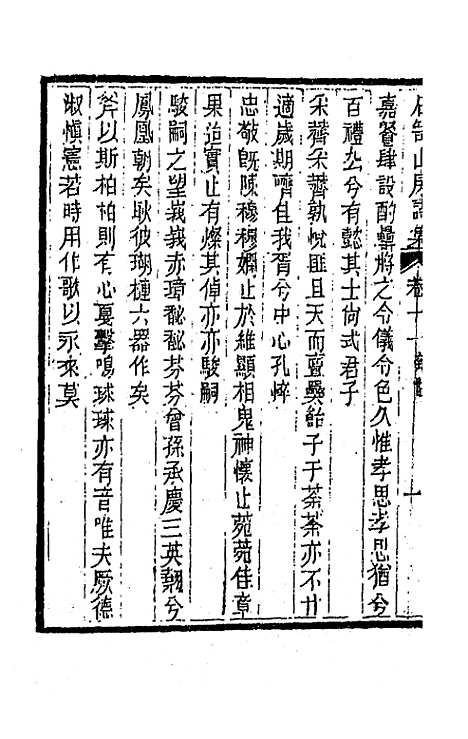 山房詩集 卷十一
嘉餐肆設酌醻將之令儀令色久惟孝思孝思猶兮
百禮厶兮有懿其士尚式君子
采薺采薺執忱匪且天而
飴子于荼荼亦不廿
適歲期
佳我胥兮中心孔悴
忠敬既陳穆穆
止於維顯相鬼神懷止菀菀佳章
果迨實止有燦其倬亦亦駿嗣
駿嗣之望峩峩亦璋馝馝芬芬曾孫承慶三英翽兮
鳳凰朝矣耿彼瑚槤六器作矣
斧以斯柏柏則有心戛擊鳴球球亦有音唯夫厥德
淑愼憲若時用作歌以永來莫